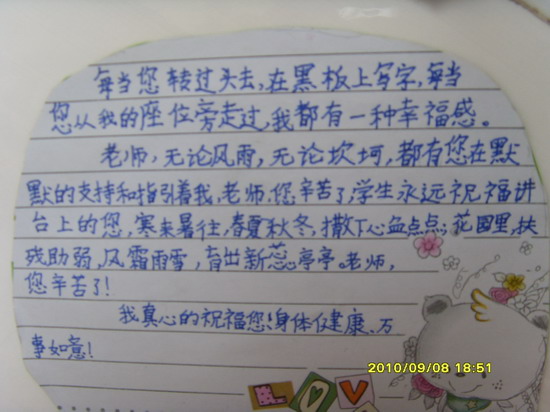 每当您转过头去,在黑板上写字,每当
您从我的座位旁走过,我都有一种幸福感。
老师,无论风雨,无论坎坷,都有您在默
默的支持和指引着我,老师,您辛苦了,学生永远祝福讲
台上的您,寒来暑往,春夏秋冬,撒下心血点点,花园里,扶
残助弱,风霜雨雪,育出新蕊亭亭。老师,
您辛苦了!
我真心的祝福您:身体健康、万
事如意!
2010/09/08 18:51
LOV